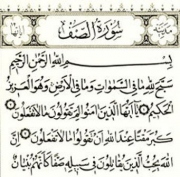 سُورَةُ الصَّفِّ
بِسْمِ اللَّهِ الرَّحْمَٰنِ الرَّحِيمِ
سَبَّحَ لِلَّهِ مَا فِي السَّمَٰوَٰتِ وَمَا فِي الْأَرْضِ وَهُوَ الْعَزِيزُ
الْحَكِيمُ يَٰأَيُّهَا الَّذِينَ ءَامَنُوا لِمَ تَقُولُونَ مَا لَا تَفْعَلُونَ
كَبُرَ مَقْتًا عِندَ اللَّهِ أَن تَقُولُوا مَا لَا تَفْعَلُونَ إِنَّ
اللَّهَ يُحِبُّ الَّذِينَ يُقَٰتِلُونَ فِي سَبِيلِهِ صَفًّا كَأَنَّهُم بُنْيَٰنٌ